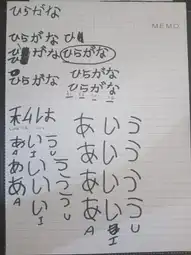 ひらがな
MEMO
ひらがな ひ
がな ひらがな
ひらがな ひらがな
ひらがな
私は
あいう
あいう
A I U
あいう
あいう
あいう
あいう
A I U